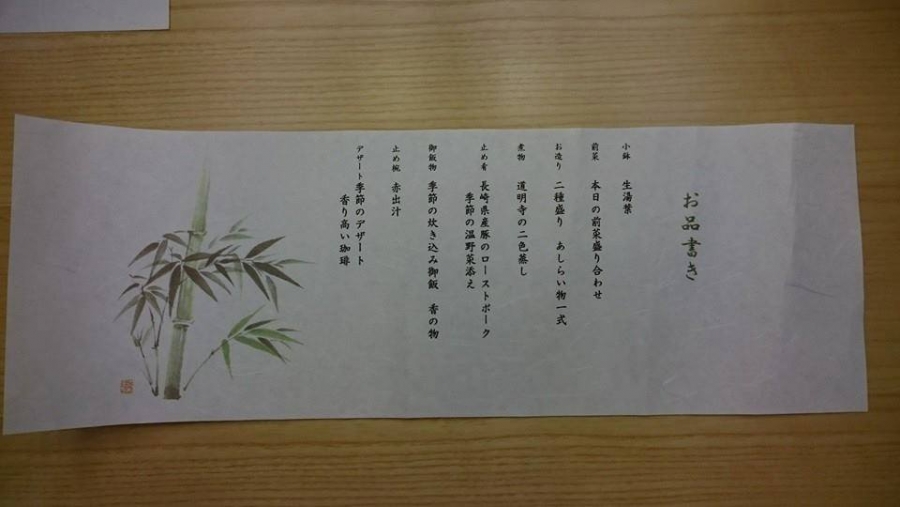 お品書き
小鉢 生湯葉
前菜 本日の前菜盛り合わせ
お造り 二種盛り あしらい物一式
煮物 道明寺の二色蒸し
止め肴 長崎県産豚のローストポーク
季節の温野菜添え
御飯物 季節の炊き込み御飯 香の物
止め椀 赤出汁
デザート 季節のデザート
香り高い珈琲